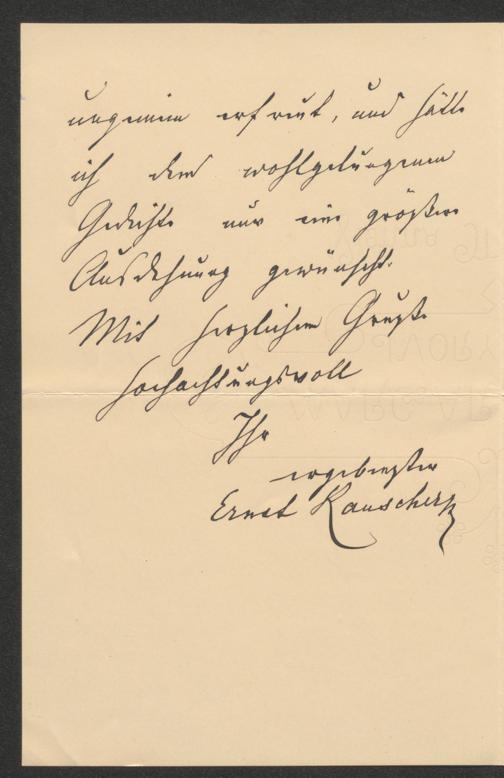 ungemein erfreut, und hätte
ich dem wohlgelungenen
Gedichte nur eine größere
Ausdehnung gewünscht.
Mit herzlichem Gruße
hochachtungsvoll
Ihr
ergebenster
Ernst Rauscher